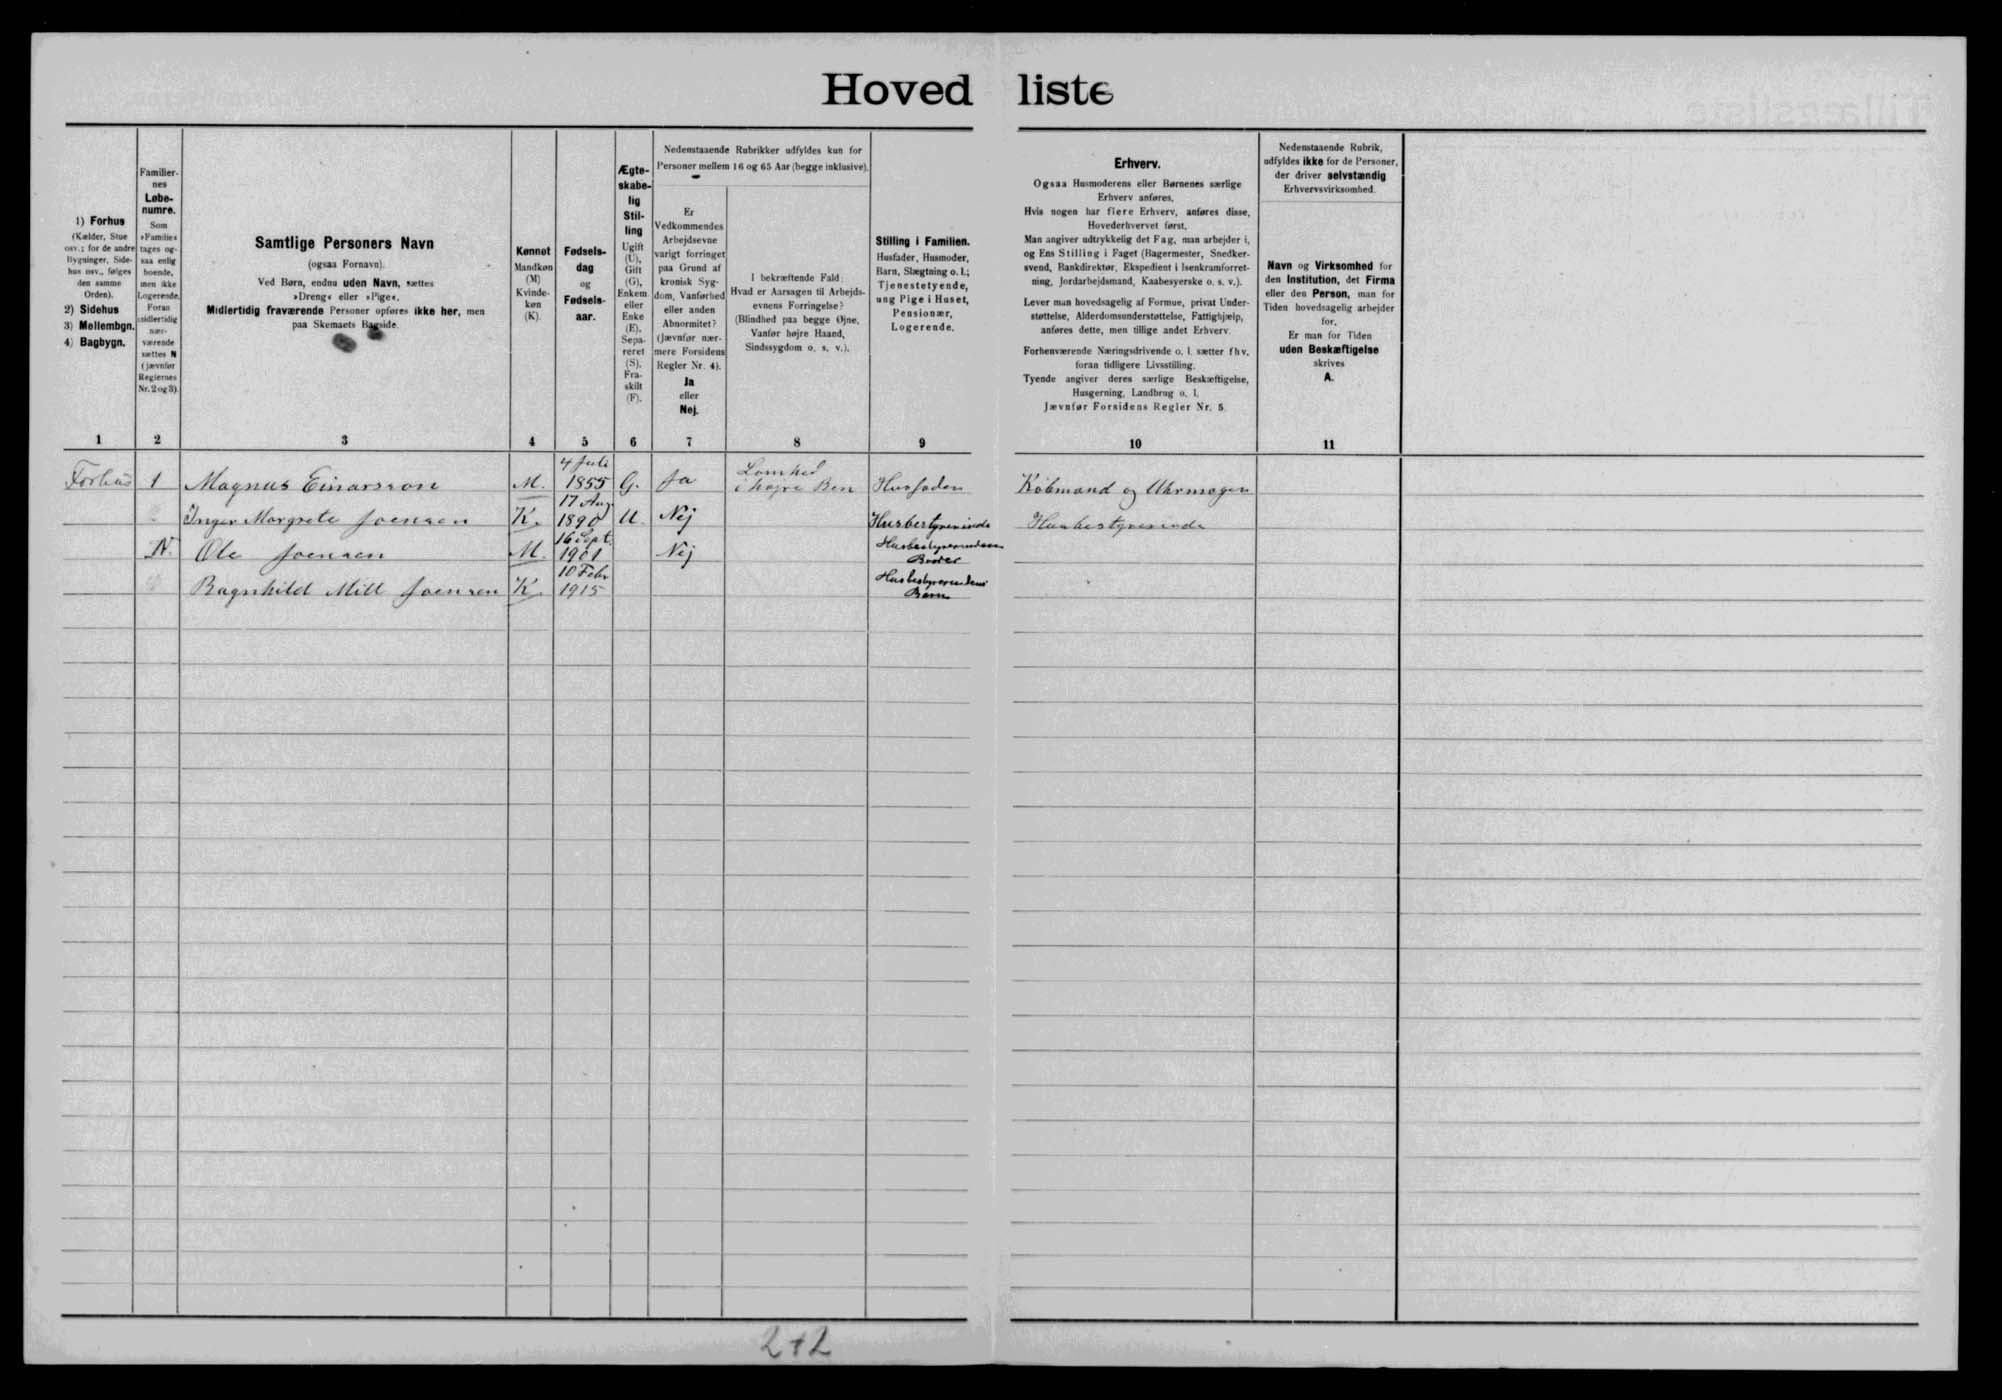 Hoved liste
1) Forhus
(Kælder, Stue
osv.; for de andre
Bygninger, Side-
hus osv., følges
den samme
Orden).
2) Sidehus
3) Mellembgn.
4) Bagbygn.
Familier-
nes
Løbe-
numre.
Som
»Familie«
tages og-
saa enlig
boende,
men ikke
Logerende.
Foran
midlertidig
nær-
værende
sættes N
(jævnfør
Reglernes
Nr. 2 og 3).
Samtlige Personers Navn
(ogsaa Fornavn).
Ved Børn, endnu uden Navn, sættes
»Dreng« eller »Pige«.
Midlertidig fraværende Personer opføres ikke her, men
paa Skemaets Bagside.
Kønnet
Mandkøn
(M)
Kvinde-
køn
(K).
Fødsels-
dag
og
Fødsels-
aar.
Ægte-
skabe-
lig
Stil-
ling
Ugift
(U),
Gift
(G),
Enkem.
eller
Enke
(E),
Sepa-
reret
(S),
Fra-
skilt
(F).
Nedenstaaende Rubrikker udfyldes kun for
Personer mellem 16 og 65 Aar (begge inklusive).
Er
Vedkommendes
Arbejdsevne
varigt forringet
paa Grund af
kronisk Syg-
dom, Vanførhed
eller anden
Abnormitet?
(Jævnfør nær-
mere Forsidens
Regler Nr. 4).
Ja
eller
Nej.
I bekræftende Fald:
Hvad er Aarsagen til Arbejds-
evnens Forringelse?
(Blindhed paa begge Øjne,
Vanfør højre Haand,
Sindssygdom o. s. v.).
Stilling i Familien.
Husfader, Husmoder,
Barn, Slægtning o. l.;
Tjenestetyende,
ung Pige i Huset,
Pensionær,
Logerende.
Erhverv.
Ogsaa Husmoderens eller Børnenes særlige
Erhverv anføres.
Hvis nogen har flere Erhverv, anføres disse,
Hovederhvervet først.
Man angiver udtrykkelig det Fag, man arbejder i,
og Ens Stilling i Faget (Bagermester, Snedker-
svend, Bankdirektør, Ekspedient i Isenkramforret-
ning, Jordarbejdsmand, Kaabesyerske o. s. v.).
Lever man hovedsagelig af Formue, privat Under-
støttelse, Alderdomsunderstøttelse, Fattighjælp,
anføres dette, men tillige andet Erhverv.
Forhenværende Næringsdrivende o. l. sætter fhv.
foran tidligere Livsstilling.
Tyende angiver deres særlige Beskæftigelse,
Husgerning, Landbrug o. l.
Jævnfør Forsidens Regler Nr. 5.
Nedenstaaende Rubrik,
udfyldes ikke for de Personer,
der driver selvstændig
Erhvervsvirksomhed.
Navn og Virksomhed for
den Institution, det Firma
eller den Person, man for
Tiden hovedsagelig arbejder
for.
Er man for Tiden
uden Beskæftigelse
skrives
A.
1 2 3 4 5 6 7 8 9 10 11
Forhus 1 Magnus Einarsson M. 4 Juli 1855 G. Ja Lamhed i højre Ben Husfader Købmand og Uhrmager
Inger Margrete Joensen K. 17 Aug. 1890 U. Nej Husbestyrerinde Husbestyrerinde
N. Ole Joensen M. 16 Sept. 1901 Nej Husbestyrerindens Broder
Ragnhild Joensen K. 10 Febr 1915 Husbestyrerindens Barn
2+2